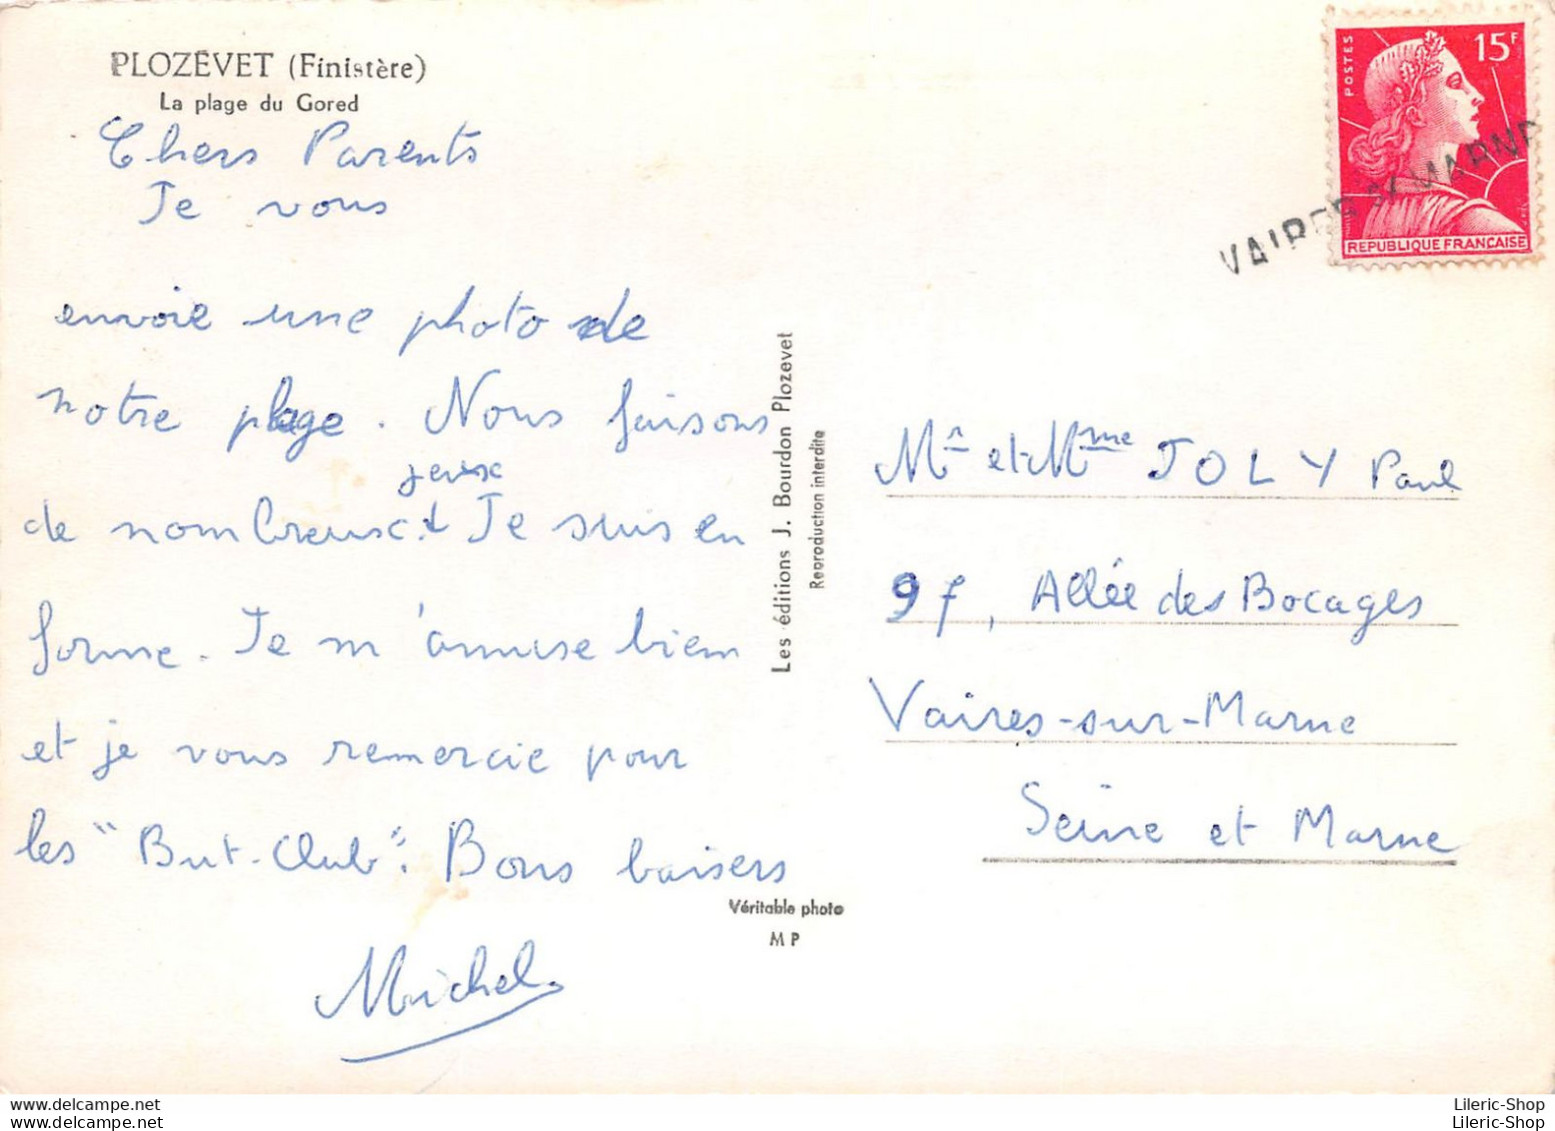 PLOZÉVET (Finistère)
La plage du Gored
Chers Parents
Je vous
envoie une photo de
notre plage. Nous faisons
jeux
de nombreux. Je suis en
forme. Je m'amuse bien
et je vous remercie pour
les "But-Club". Bons baisers
Michel.
Les éditions J. Bourdon Plozevet
Reproduction interdite
Véritable photo
M P
POSTES
15F
REPUBLIQUE FRANÇAISE
VAIRES S/ MARNE
Mr et Mme JOLY Paul
97, Allée des Bocages
Vaires-sur-Marne
Seine et Marne
Lileric-Shop
Lileric-Shop
Lileric-Shop
Lileric-Shop